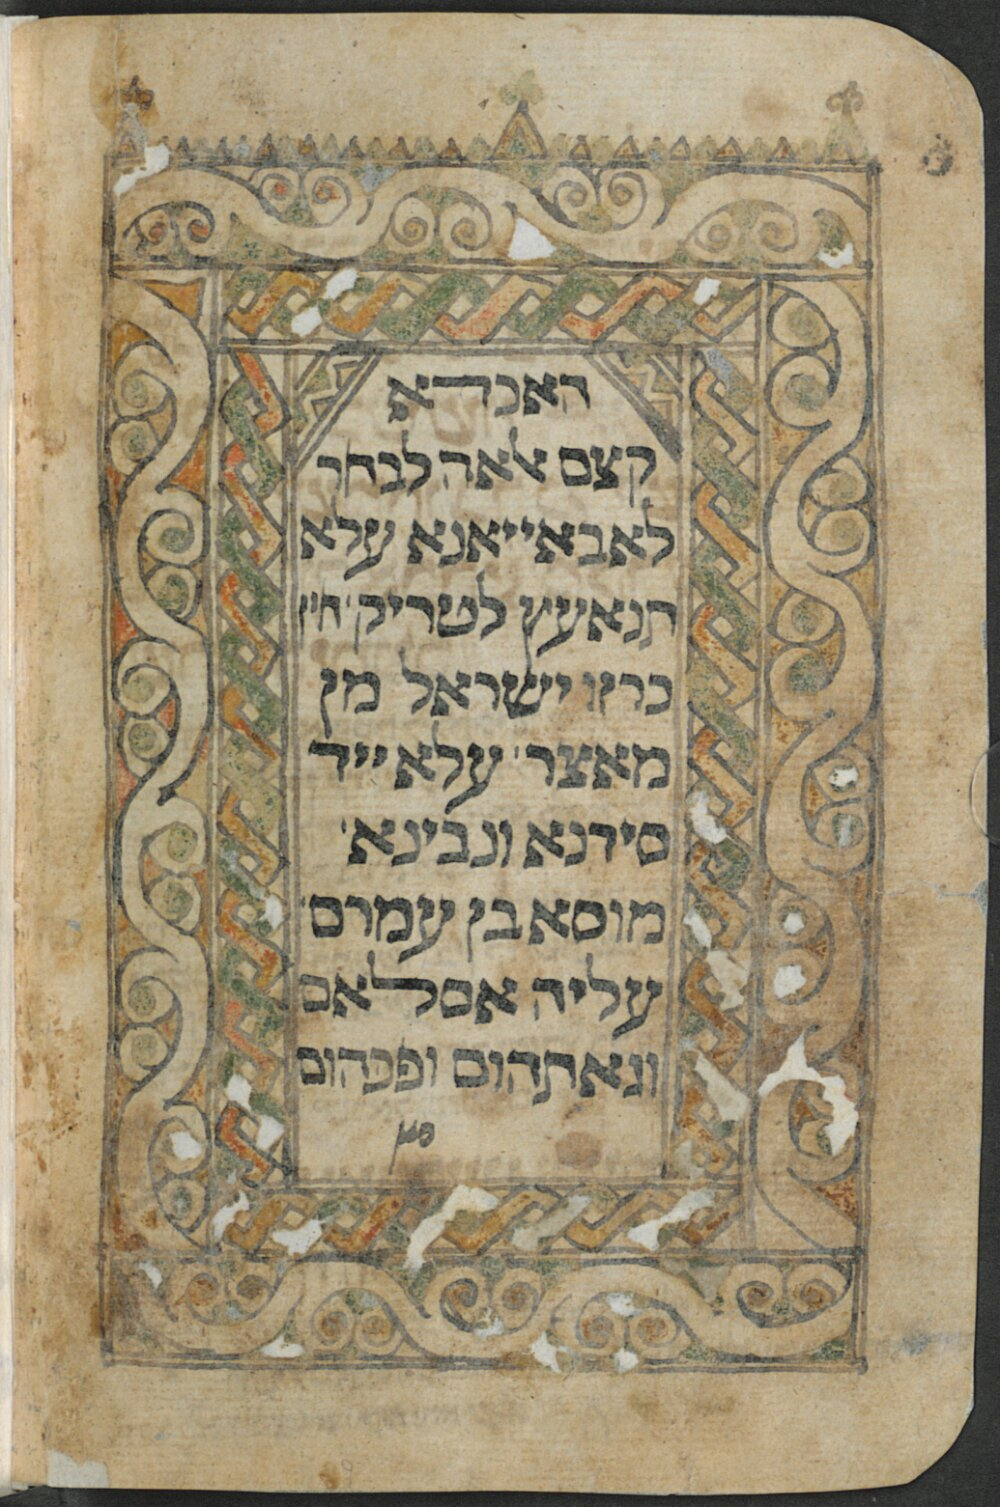 האכדא
קצם אלאה לבחר
לאבאייאנא עלא
תנאעץ לטריק׳ חין
כרזו ישראל מן
מאצר׳ עלא ייד
סידנא ונבינא׳
מוסא בן עמרם׳
עליה אסלאם
ונאתהום ופכהום